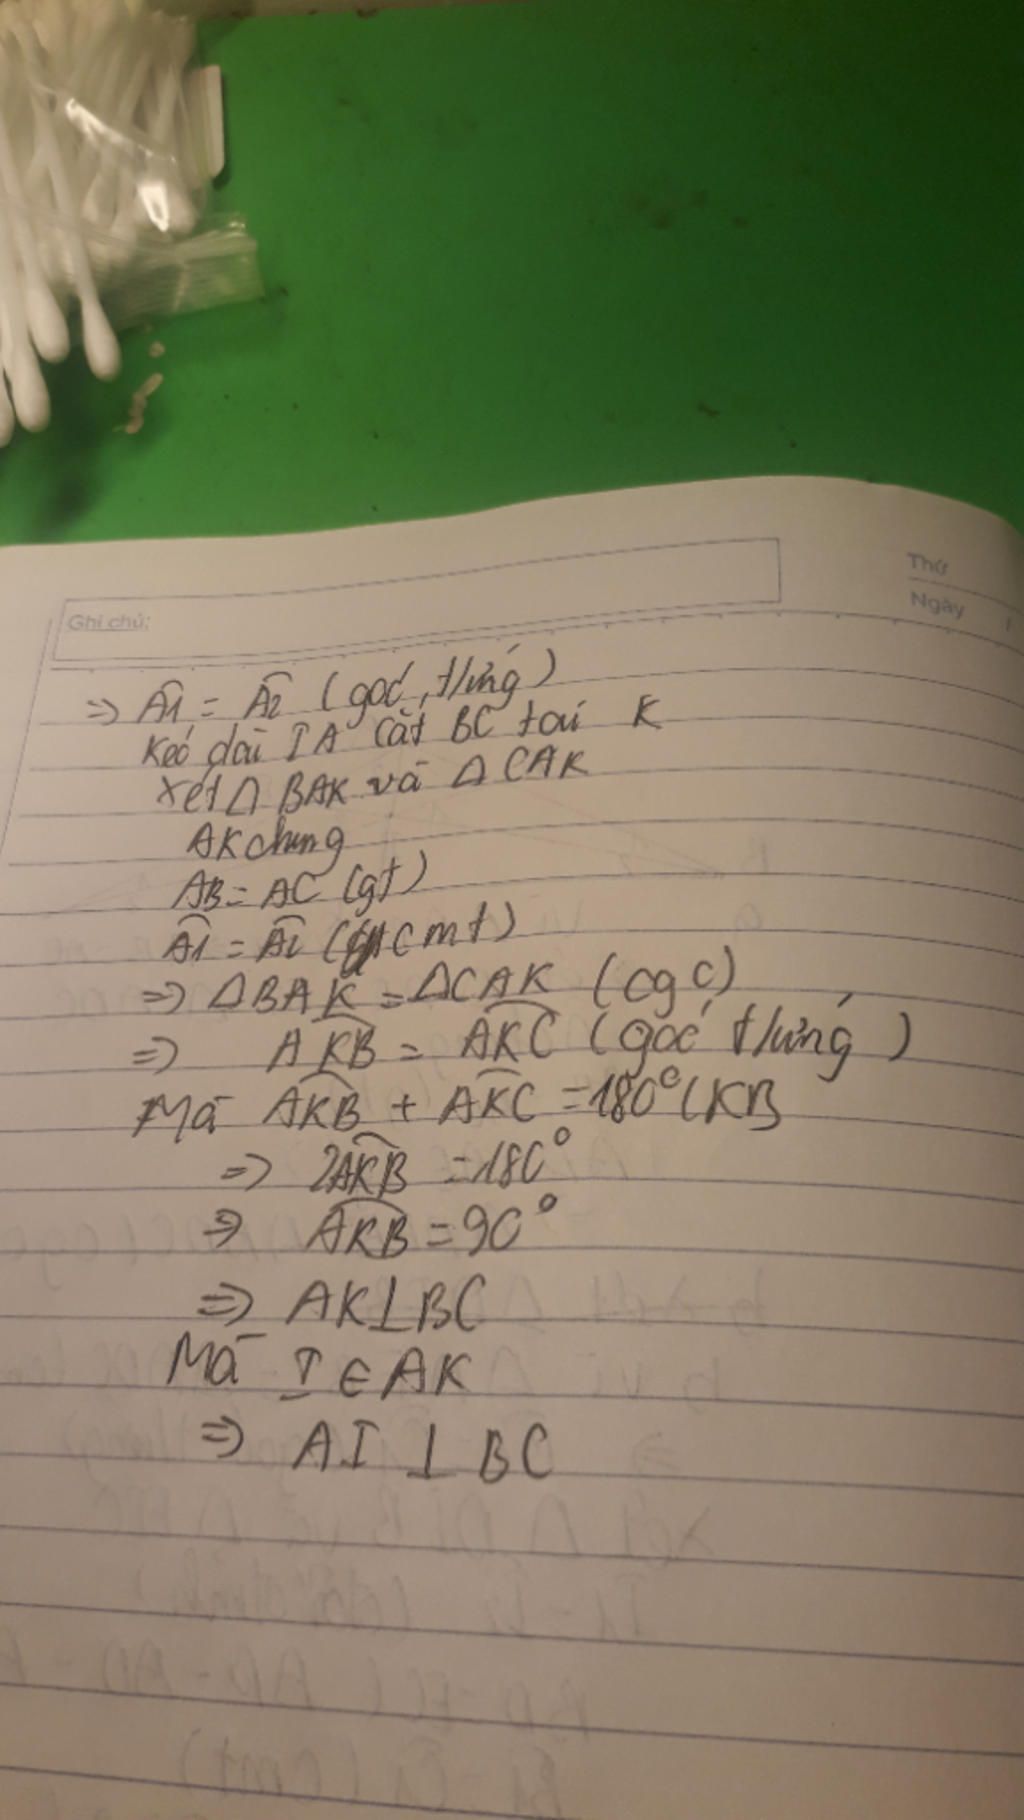 Thứ
Ngày
Ghi chú:
=> Â1 = Â2 (góc t/ứng)
Kéo dài IA cắt BC tại K
Xét Δ BAK và Δ CAK
AK chung
AB = AC (gt)
Â1 = Â2 (cmt)
=> ΔBAK = ΔCAK (cgc)
=> AKB = AKC (góc t/ứng)
Mà AKB + AKC = 180° (KB
=> 2AKB = 180°
=> AKB = 90°
=> AK⊥BC
Mà I ∈ AK
=> AI ⊥ BC